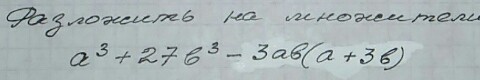 Разложить на множители
a³ + 27b³ - 3ab(a + 3b)